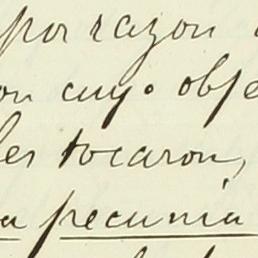 por razon
on cuyo obje
les tocaron,
a pecunia